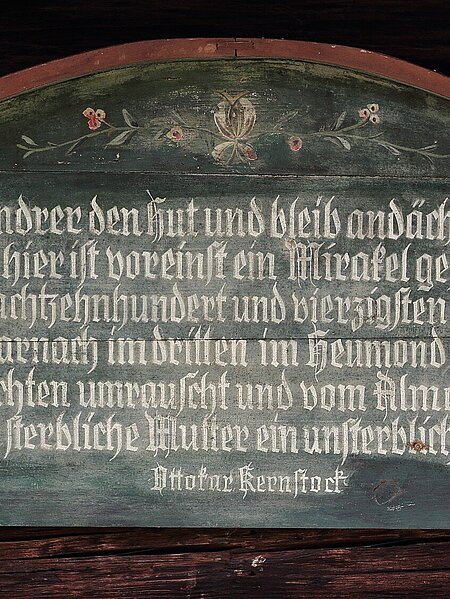 ndrer den Hut und bleib andäch
hier ist voreinst ein Mirakel ge
achtzehnhundert und vierzigsten
arnach im dritten im Heumond
chten umrauscht und vom Alm
sterbliche Mutter ein unsterblich
Ottokar Kernstock